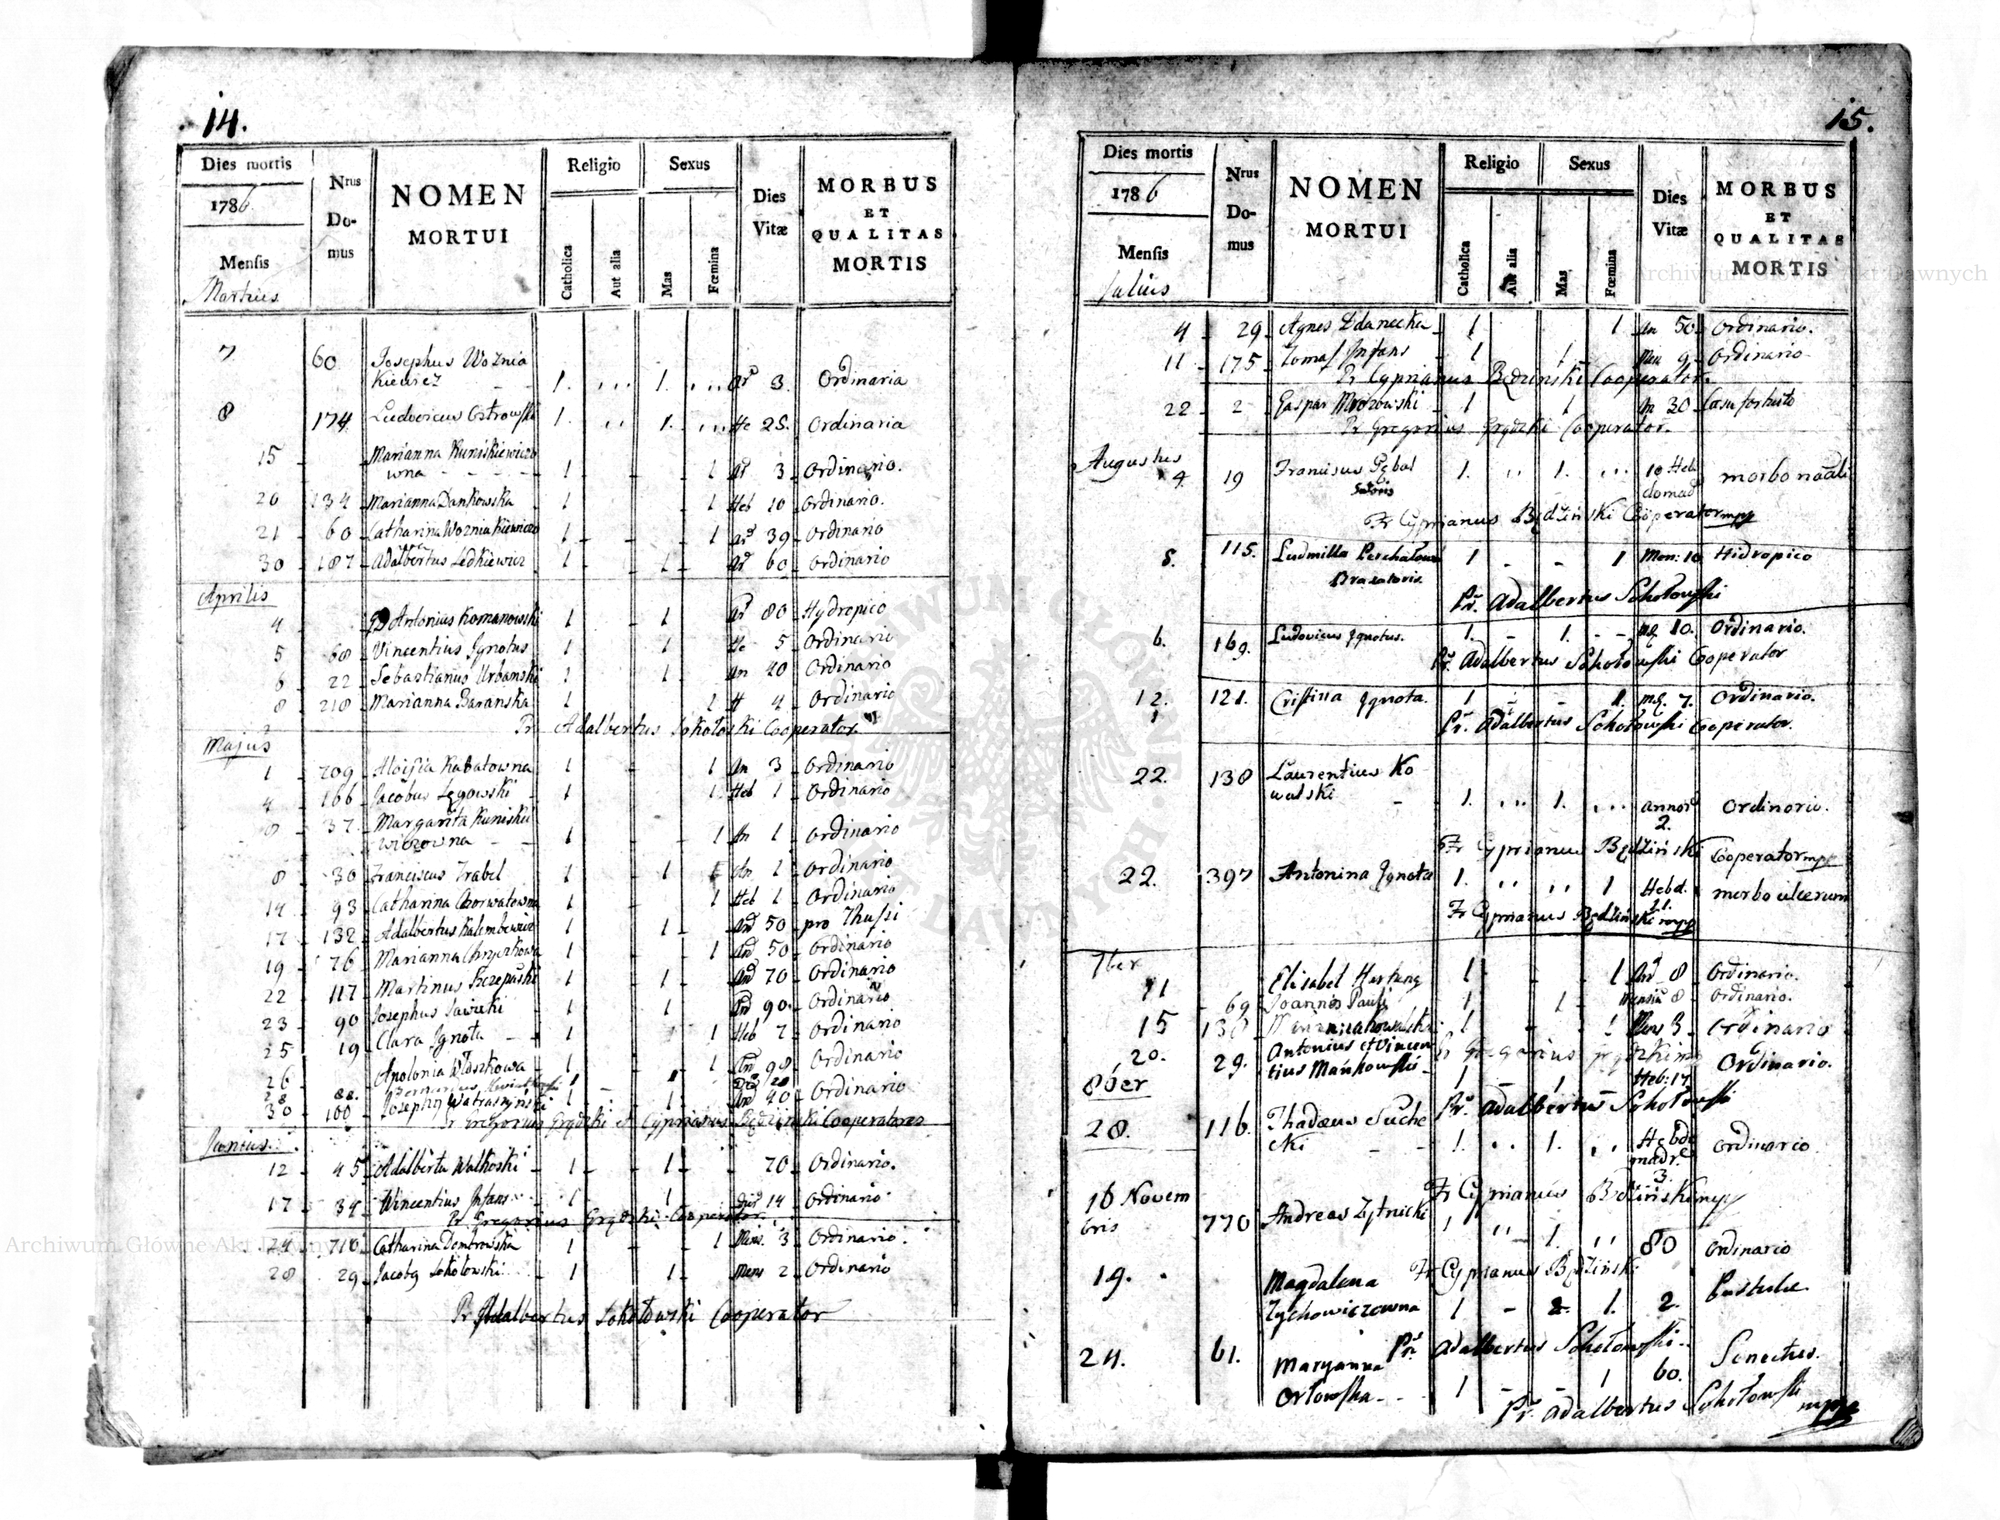 14.
Dies mortis
1786
Mensis
Martius
Nrus Do-mus
NOMEN
MORTUI
Religio
Catholica
Aut alia
Sexus
Mas
Fœmina
Dies
Vitæ
MORBUS
ET
QUALITAS
MORTIS
7 60 Josephus Woznia
kiewicz 1. 1. 3. Ordinaria
8 174 Ludovicus Ostrowski 1. 1. He 25. Ordinaria
15 Marianna Kuniskiewiczo
wna 1 1 3 Ordinario.
20 134 Marianna Dankowska 1 1 Heb 10 Ordinario.
21 60 Catharina Wozniakiewiczo 1 1 39 Ordinario
30 187 Adalbertus Ledkiewicz 1 1 60 Ordinario
Aprilis
4 Antonius Romanowski 1 1 80 Hydropico
5 68 Vincentius Ignotus 1 1 He 5 Ordinario
6 22 Sebastianus Urbanski 1 1 An 40 Ordinario
8 218 Marianna Baranska 1 1 H 4 Ordinario
Pr. Adalbertus Sokołoski Cooperator
Majus
1 209 Aloisia Rabatowna 1 1 An 3 Ordinario
4 166 Jacobus Łęgowski 1 1 Heb 1 Ordinario
8 37 Margarita Kuniskie
wiczowna 1 1 An 1 Ordinario
8 30 Franciscus Trabel 1 1 An 1 Ordinario
14 93 Catharina Chorwatowna 1 1 Heb 1 Ordinario
17 132 Adalbertus Kalembkiewicz 1 1 50 pro Thussi
19 76 Marianna 1 1 50 Ordinario
22 117 Martinus Szczepański 1 1 70 Ordinario
23 90 Josephus Sawicki 1 1 90. Ordinario
25 19 Clara Ignota 1 1 Heb 2 Ordinario
26 Apolonia Włoszkowa 1 1 An 98 Ordinario
28 88.
30 100 Joseph 1 1 40 Ordinario
Pr Gregorius Grądzki et Cyprianus Będzinski Cooperatores
Junius
12 45 Adalberta Walkoski 1 1 70 Ordinario.
17 34 Wincentius Infans 1 1 14 Ordinario
Pr Gregorius Grądzki Cooperator
24 710 Catharina Dombrowska 1 1 Mens. 3 Ordinario.
28 29 Jacoby Sokołowski 1 1 Mens 2 Ordinario
Pr Adalbertus Sokołowski Cooperator
15.
Dies mortis
1786
Mensis
Julius
Nrus Do-mus
NOMEN
MORTUI
Religio
Catholica
Aut alia
Sexus
Mas
Fœmina
Dies
Vitæ
MORBUS
ET
QUALITAS
MORTIS
4 29 Agnes Zdanecka 1 1 An 50 Ordinario.
11 175 Tomas Infans 1 1 Men 9 Ordinario
Pr Cyprianus Będzinski Cooperator.
22 2 Gaspar Mrozowski 1 1 An 30 Casu fortuito
Pr Gregorius Grądzki Cooperator.
Augustus
4 19 Franciscus Gębal 1. 1. 10 Heb
domad morbo
Fr Cyprianus Będźiński Cooperator mpp
5. 115. Ludmilla 1 1 Men: 10 Hidropico
Braxatoris
Pr. Adalbertus Sokołowski
6. 169. Ludovicus Ignotus. 1. 1. 10. Ordinario.
Pr. Adalbertus Sokołowski Cooperator
12. 121. Cristina Ignota. 1 1. 7. Ordinario.
Pr. Adalbertus Sokołowski Cooperator.
22. 138 Laurentius Ko
walski 1. 1. annor
2. Ordinorio.
Fr Cyprianus Będźiński Cooperator mpp
22. 397 Antonina Ignota 1. 1 Hebd.
21. morbo ulcerum
Fr Cyprianus Będźiński mpp
7ber
11 Elisabet Hertung 1 1 8 Ordinario.
69 Joannes Pauli 1 1 8 Ordinario.
15 138 1 1 Mens 3 Ordinario
20. 29. Antonius et Vincen
tius Mańkowski 1 1 Heb: 17 Ordinario.
Pr. Adalbertus Sokołowski
8ber
28. 116. Thadæus Suche
cki 1. 1. Hebdo
madr.
3. Ordinario
Fr Cyprianus Będźiński mpp
16 Novem
bris 770 Andreas Zytnicki 1 1. 80 Ordinario
Fr Cyprianus Będźiński
19. Magdalena
Zychowiczowna 1 1. 2. Pustulæ
Pr. Adalbertus Sokołowski
24. 61. Maryanna
Orłowska 1 1 60. Senectus.
Pr. Adalbertus Sokołowski mpp
Archiwum Główne Akt Dawnych
Archiwum Główne Akt Dawnych
ARCHIWUM GŁÓWNE AKT DAWNYCH